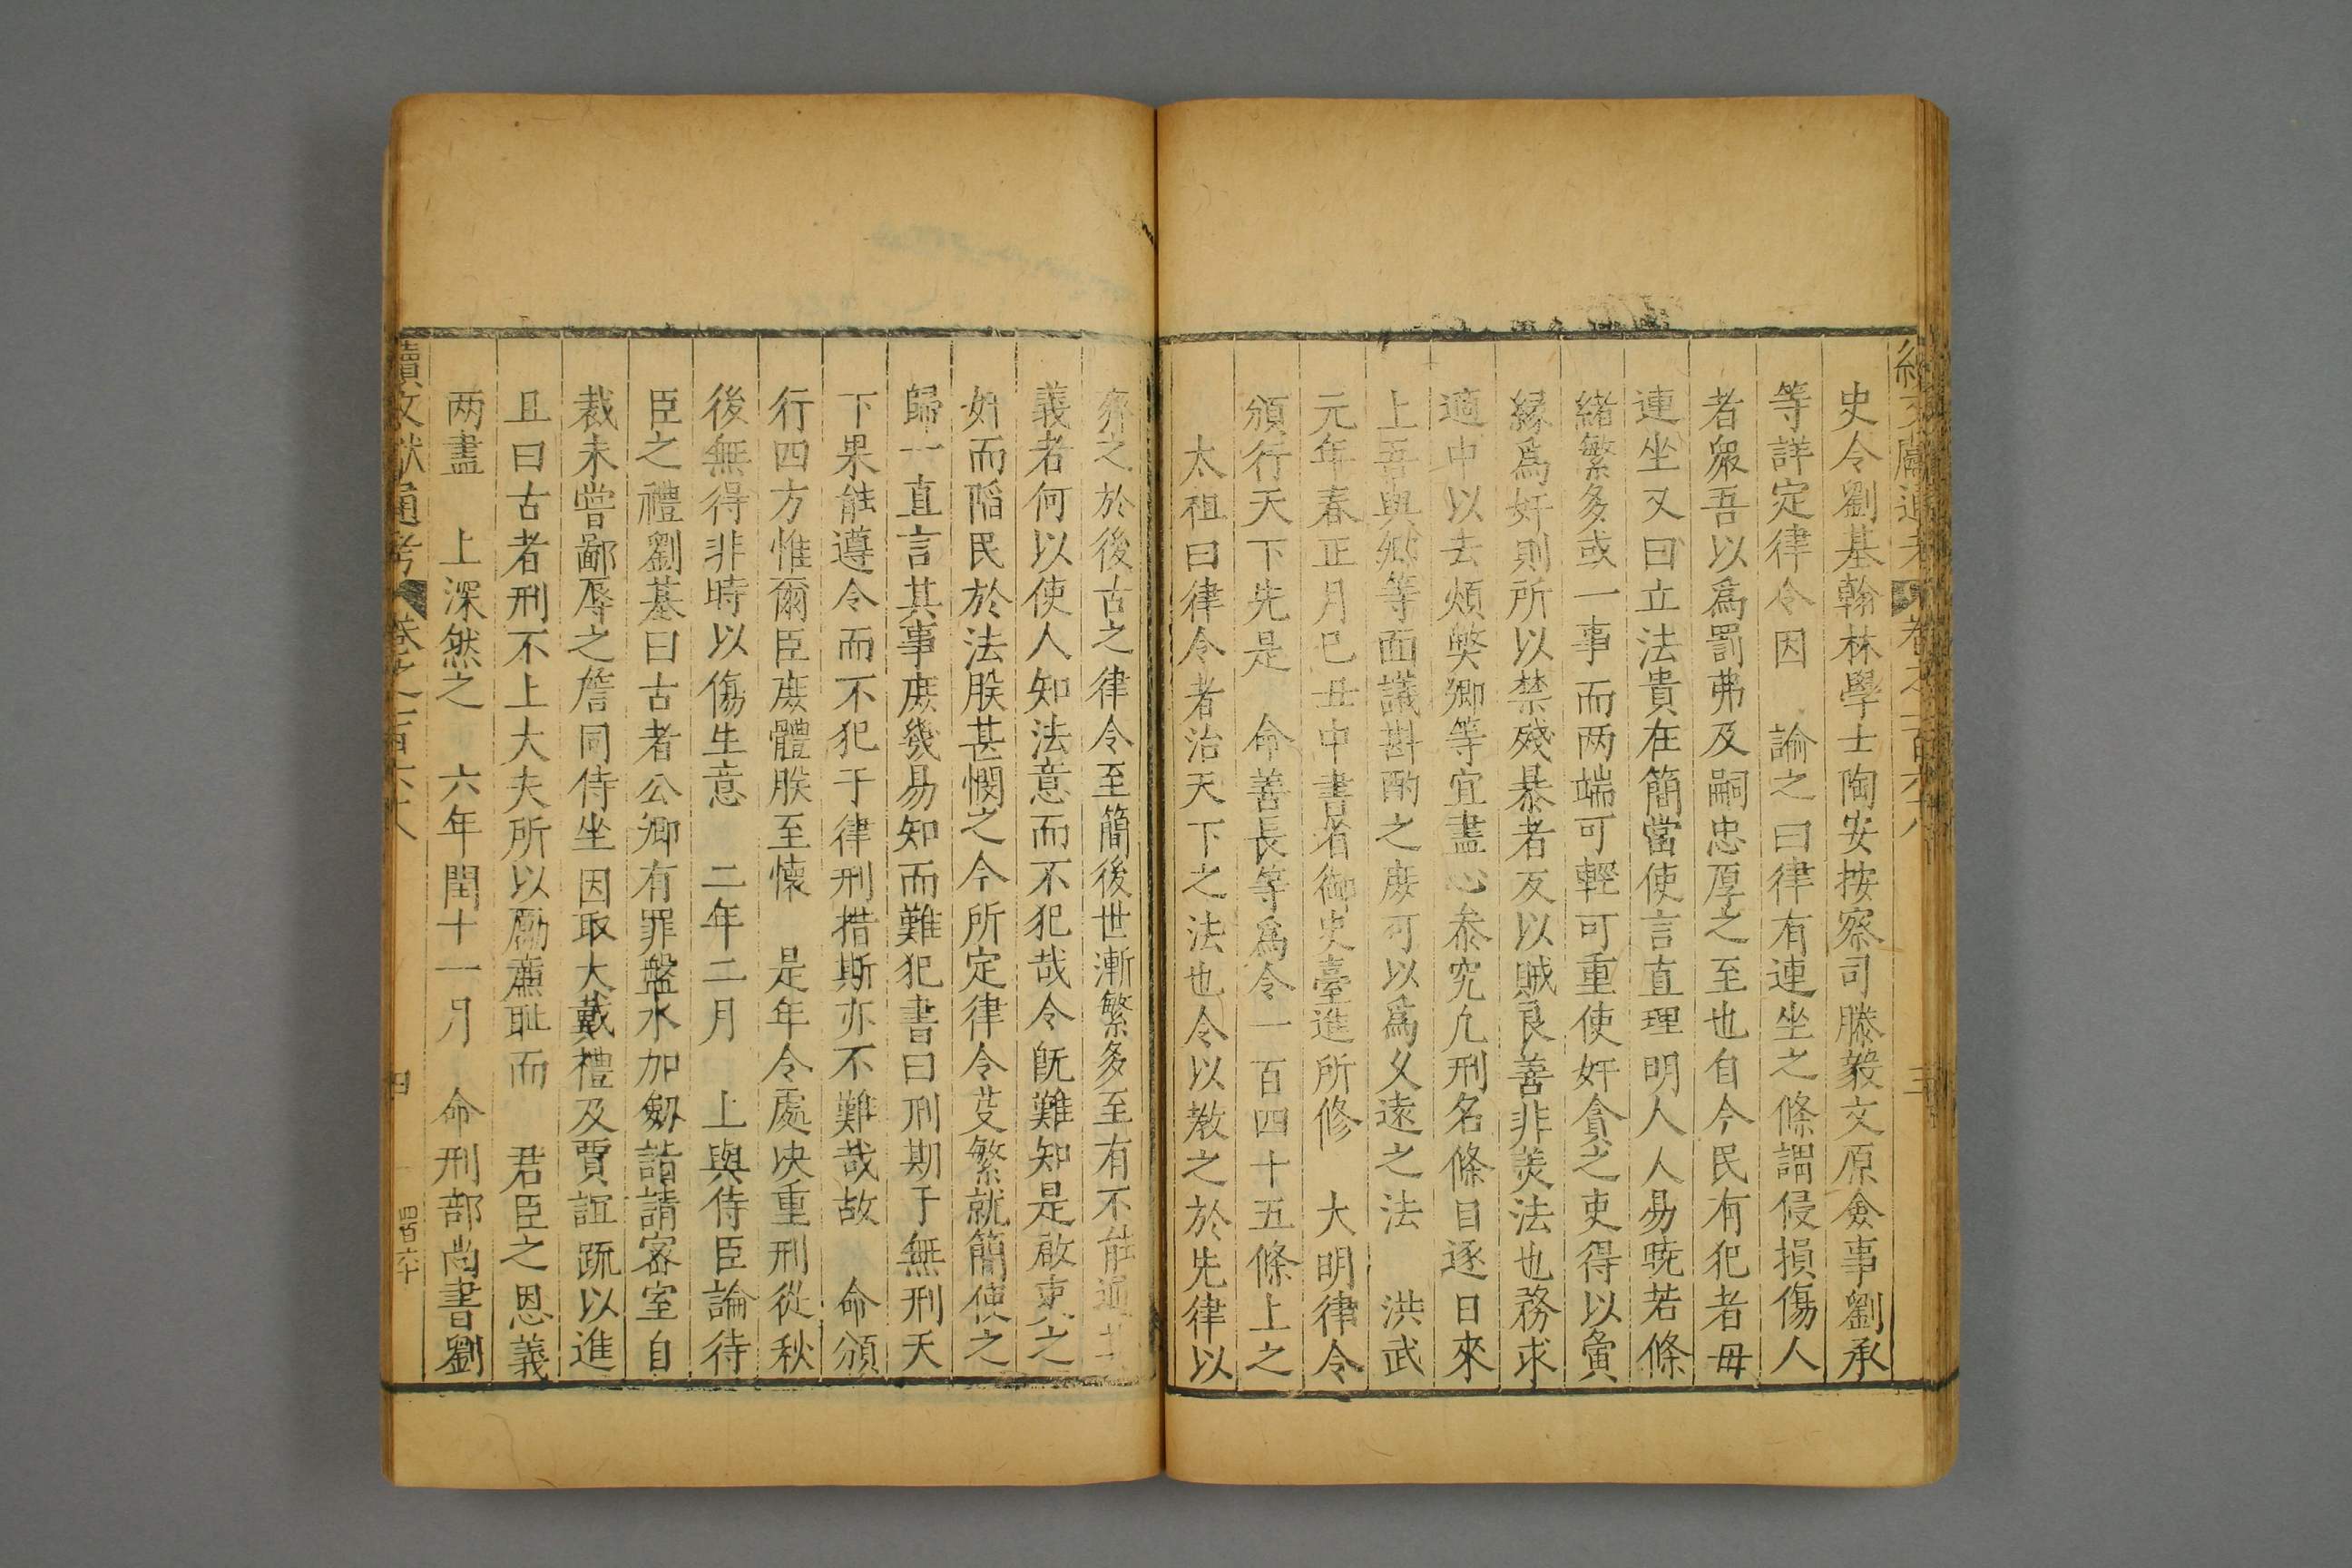 續文獻通考 卷之一百六十八 三
史令劉基翰林學士陶安按察司滕毅文原僉事劉承
等詳定律令因 諭之曰律有連坐之條謂侵損傷人
者衆吾以爲罰弗及嗣忠厚之至也自今民有犯者毋
連坐又曰立法貴在簡當使言直理明人人易曉若條
緒繁多或一事而两端可輕可重使奸貪之吏得以夤
緣爲奸則所以禁殘暴者反以賊良善非羙法也務求
適中以去煩獘卿等宜盡心叅究凢刑名條目逐日來
上吾與卿等面議斟酌之庻可以爲乆遠之法 洪武
元年春正月巳丑中書省御史臺進所修 大明律令
頒行天下先是 命善長等爲令一百四十五條上之
太祖曰律令者治天下之法也令以教之於先律以
齊之於後古之律令至簡後世漸繁多至有不能通其
義者何以使人知法意而不犯哉令旣難知是啟吏之
奸而陷民於法朕甚憫之今所定律令芟繁就簡使之
歸一直言其事庻幾易知而難犯書曰刑期于無刑天
下果能遵令而不犯于律刑措斯亦不難哉故 命頒
行四方惟爾臣庻體朕至懷 是年令處决重刑從秋
後無得非時以傷生意 二年二月 上與侍臣論待
臣之禮劉基曰古者公卿有罪盤水加劔詣請室自
裁未嘗鄙辱之詹同侍坐因取大戴禮及賈誼疏以進
且曰古者刑不上大夫所以勵亷耻而 君臣之恩義
两盡 上深然之 六年閏十一月 命刑部尚書劉
續文獻通考 卷之一百六十八 四 四百六十